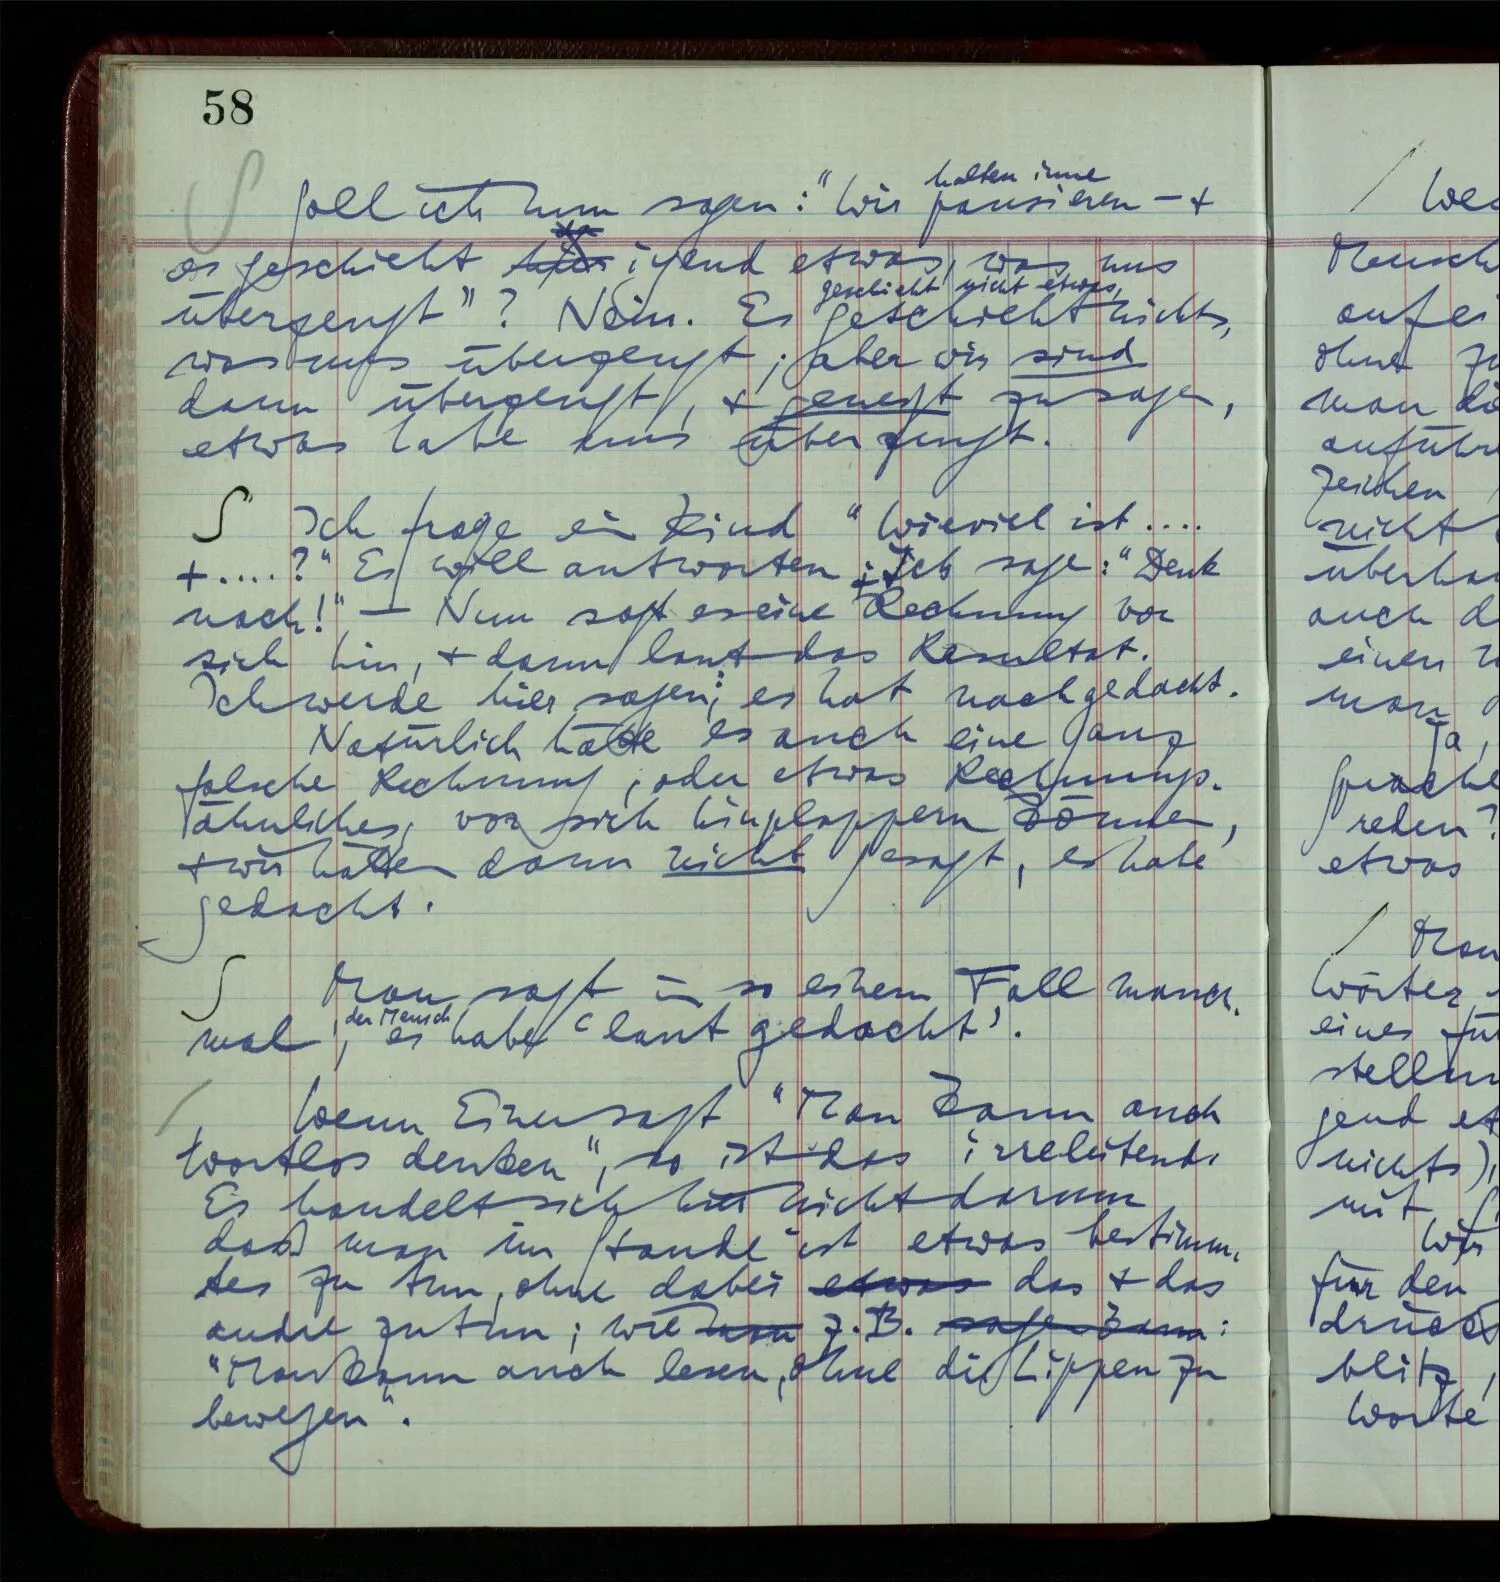 58
∫ Soll ich nun sagen: "Wir pausieren – +
halten inne
es geschieht hier irgend etwas, was uns
da
überzeugt"? Nein. Es geschieht nichts,
geschieht nicht etwas,
was uns überzeugt; aber wir sind
dann überzeugt, + geneigt zu sagen,
etwas habe uns überzeugt.
∫ Ich frage ein Kind "Wieviel ist ....
+ ....?" Es will antworten; ich sage: "Denk
nach!" – Nun sagt es eine Rechnung vor
sich hin, + dann laut das Resultat.
Ich werde hier sagen; es hat nachgedacht.
Natürlich hätte es auch eine ganz
falsche Rechnung, oder etwas Rechnungs-
ähnliches, vor sich hinplappern können,
+ wir hätten dann nicht gesagt, es habe
gedacht.
∫ Man sagt in so einem Fall manch-
mal, es habe 'laut gedacht'.
der Mensch
/ Wenn Einer sagt "Man kann auch
wortlos denken", so ist das irreleitend.
Es handelt sich hier nicht darum
daß man im Stande ist etwas bestimm-
tes zu tun, ohne dabei etwas das + das
andre zu tun; wie man z.B. sagen kann:
"Man kann auch lesen, ohne die Lippen zu
bewegen".
/
Mensch
auf ei
ohne zu
man
anführ
Zeichen
nicht
überhau
auch d
einen
man
Ja,
Sprache
reden?
etwas
/ Man
Wörter
eines
stellun
gend et
nichts),
mit
Wir
für den
drück
blitz,
Worte